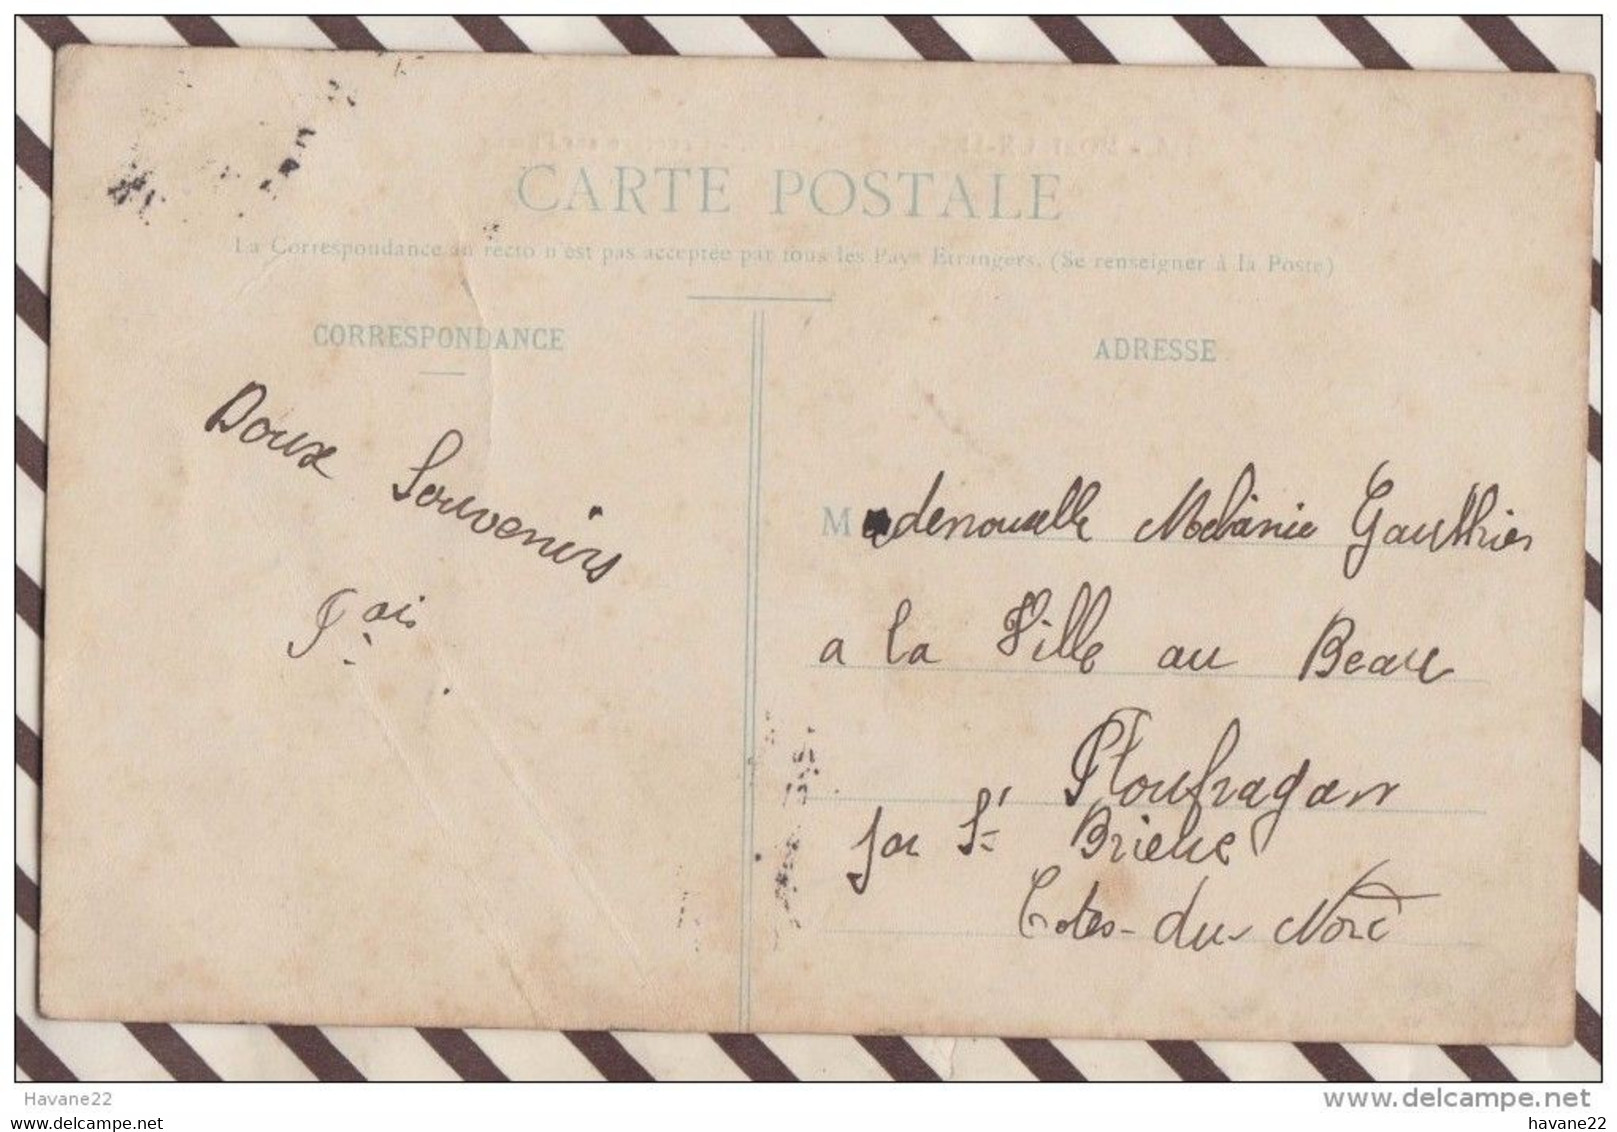 CARTE POSTALE
La Correspondance au recto n'est pas acceptée par tous les Pays Etrangers. (Se renseigner à la Poste)
CORRESPONDANCE
Doux Souvenirs
ADRESSE
Mademouselle Melanie Gauthier
a la Ville au Beau
Ploufragan
par St Brieuc
Cotes-du Nord
Havane22
www.delcampe.net
havane22